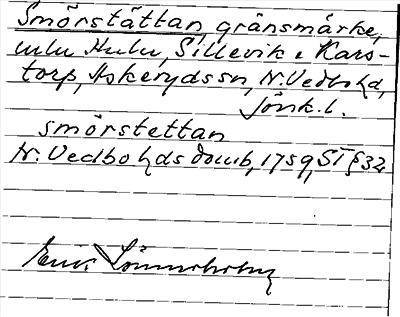 Smörstättan, gränsmärke,
mlu Hulu, Sillevik o Kars-
torp, Askeryds sn, N. Vedbo hd,
Jönk. l.
smörstettan
N. Vedbo hds domb, 1759, ST § 32